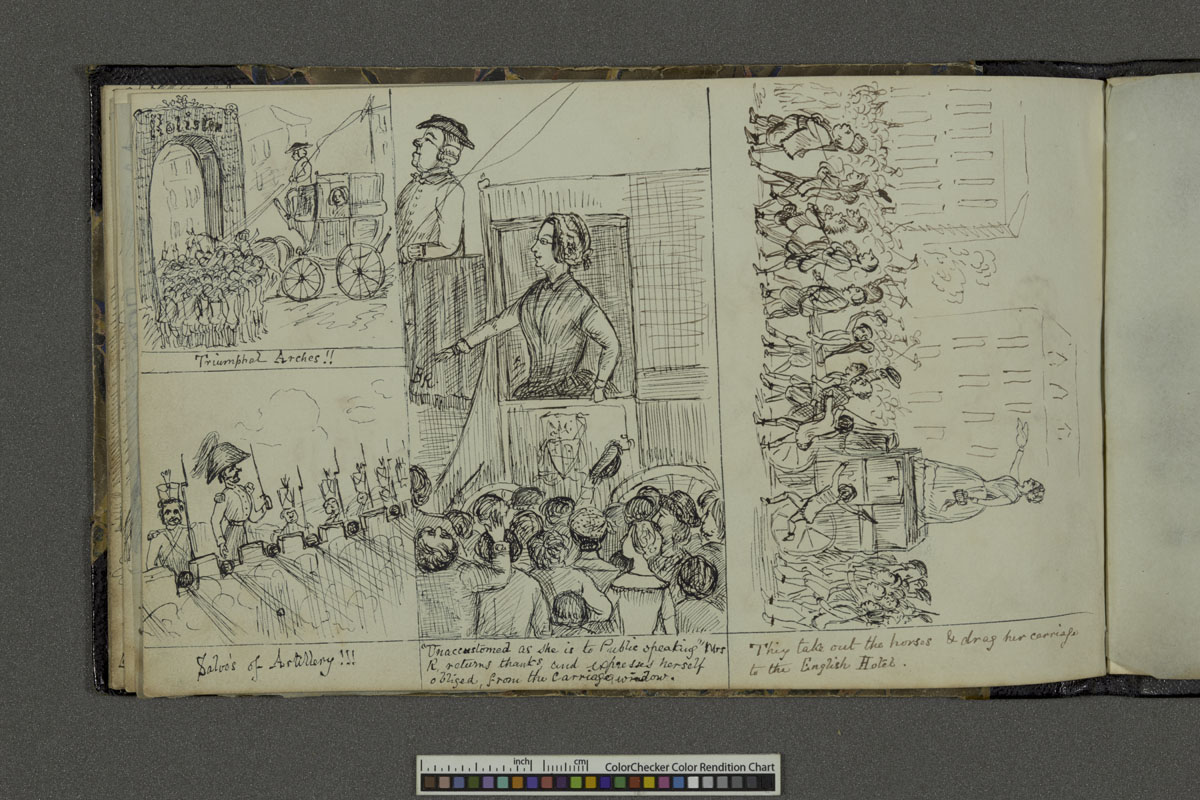 Rolister
Triumphal Arches!!
Salvo's of Artillery!!!
BR
"Unaccustomed as she is to Public speaking" Mrs
R. returns thanks, and expresses herself
obliged, from the Carriage window.
They take out the horses & drag her carriage
to the English Hotel.
inch
cm
ColorChecker Color Rendition Chart